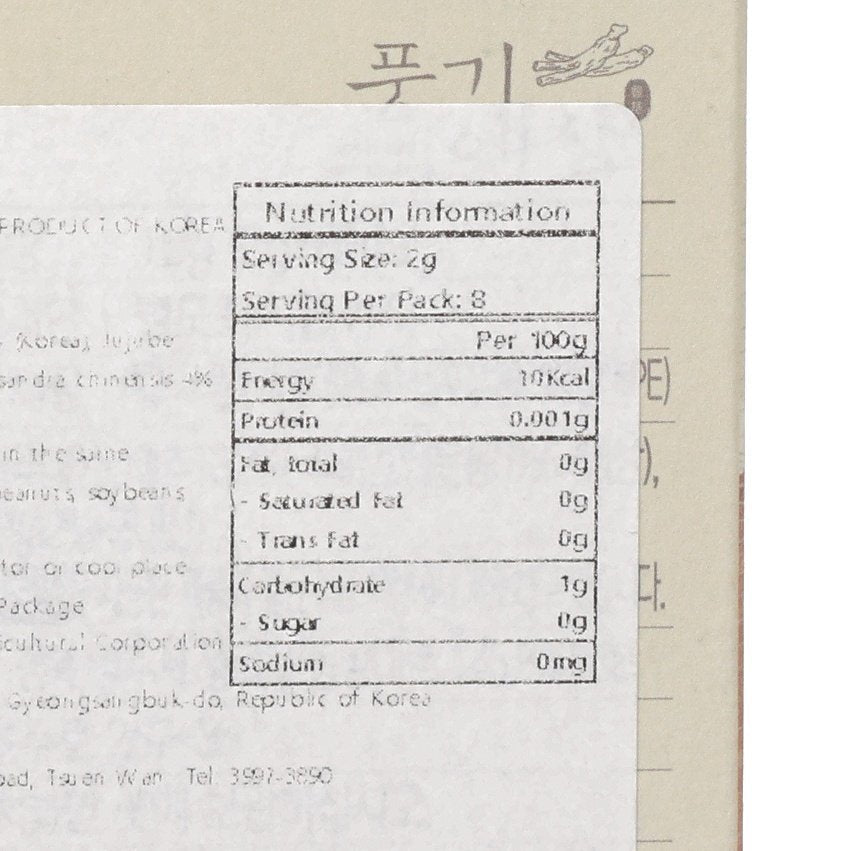 풍기
PRODUCT OF KOREA
Nutrition Information
Serving Size: 2g
Serving Per Pack: 8
Per 100g
(Korea), Jujube
sandra chinensis 4%
Energy 10Kcal
PE)
Protein 0.001g
in the same
Fat, total 0g
peanuts, soybeans
- Saturated Fat 0g
- Trans Fat 0g
tor or cool place
Carbohydrate 1g
다.
Package
- Sugar 0g
icultural Corporation
Sodium 0mg
Gyeongsangbuk-do, Republic of Korea
oad, Tsuen Wan Tel: 3997-3890